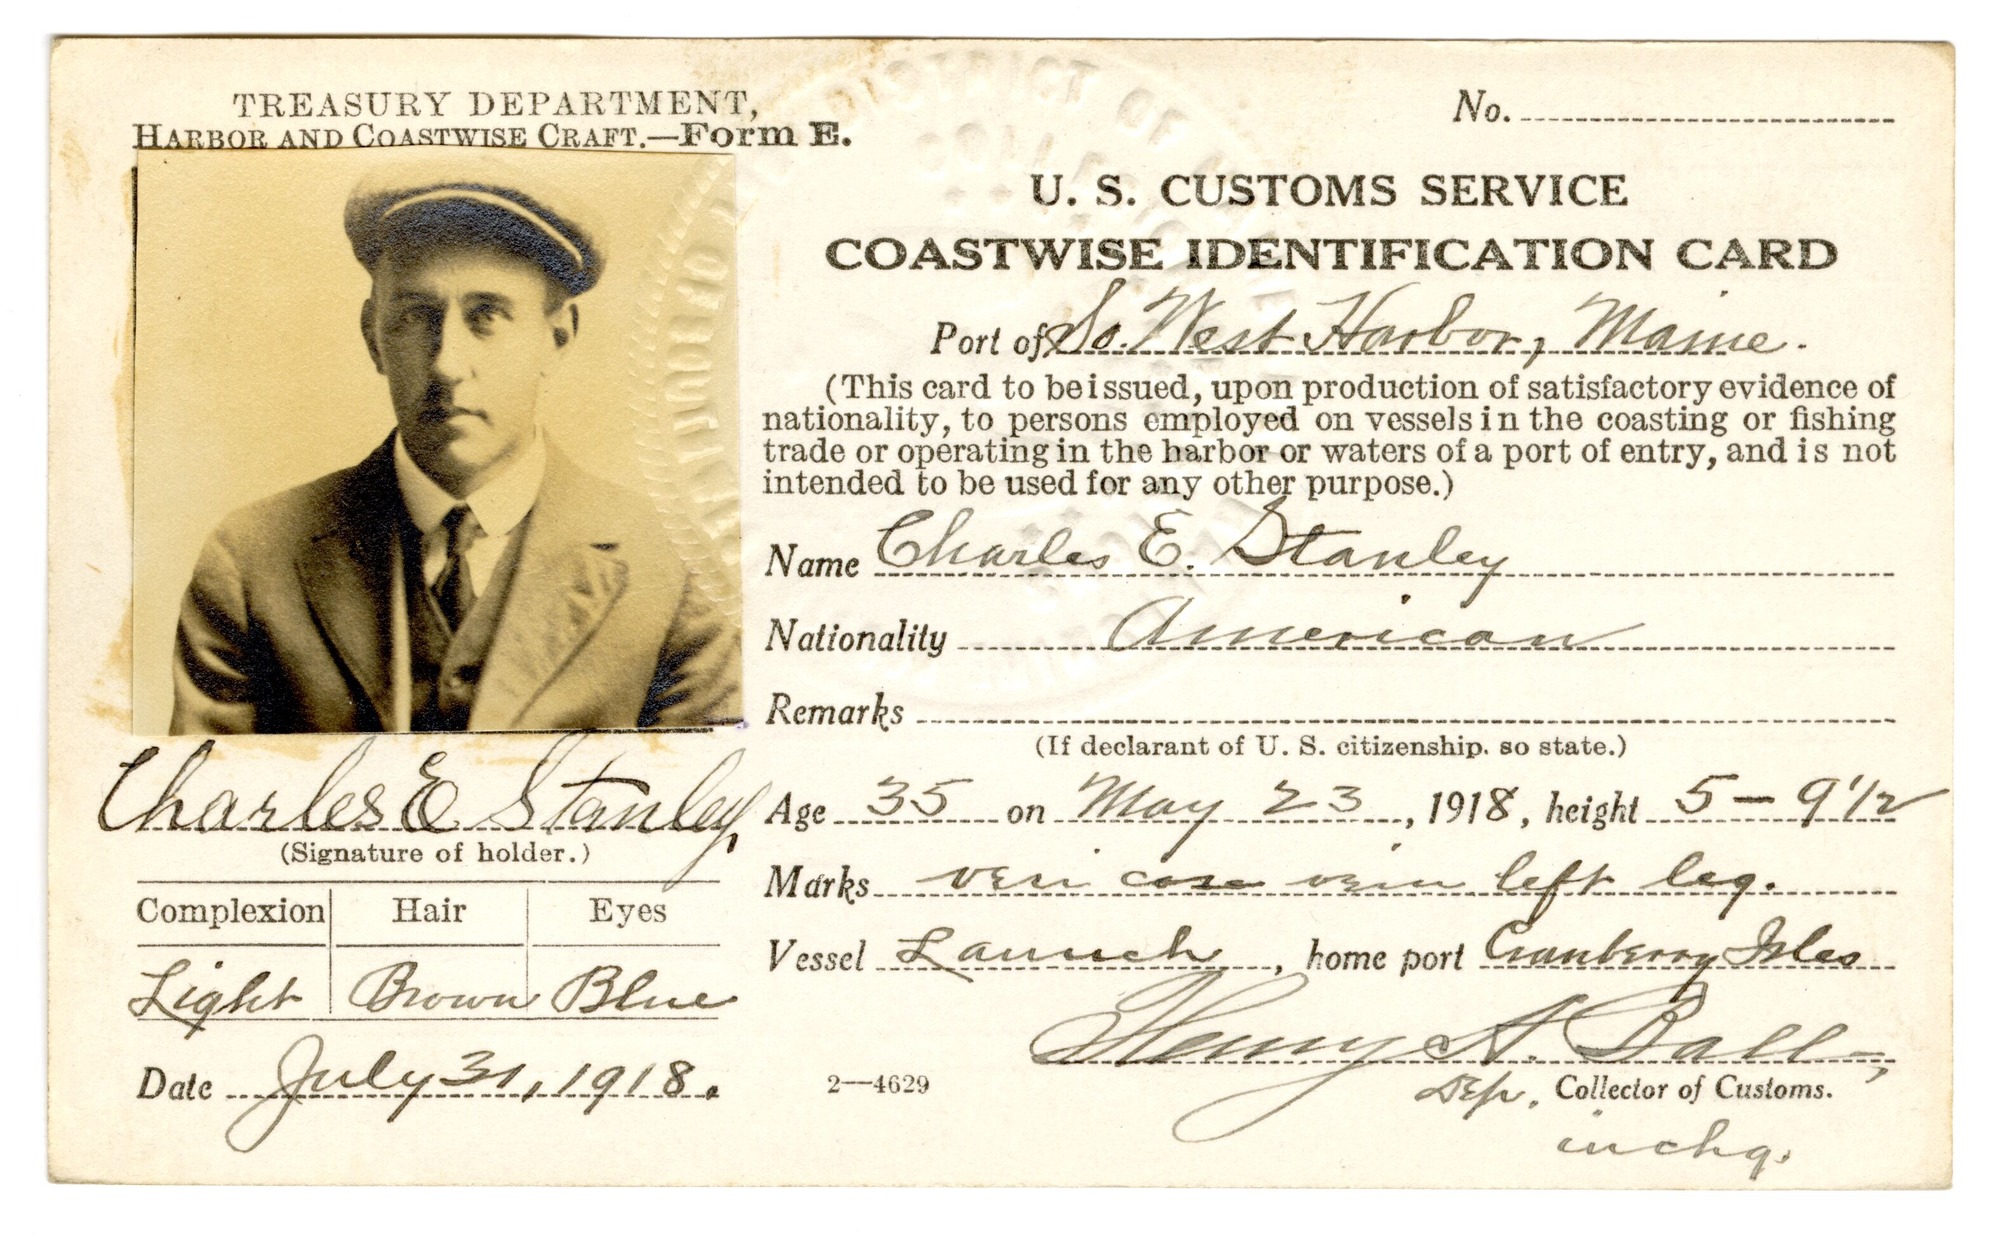 TREASURY DEPARTMENT,
HARBOR AND COASTWISE CRAFT.—Form E.
No.
U. S. CUSTOMS SERVICE
COASTWISE IDENTIFICATION CARD
Port of So. West Harbor, Maine.
(This card to be issued, upon production of satisfactory evidence of
nationality, to persons employed on vessels in the coasting or fishing
trade or operating in the harbor or waters of a port of entry, and is not
intended to be used for any other purpose.)
Name Charles E. Stanley
Nationality American
Remarks
(If declarant of U. S. citizenship. so state.)
Charles E Stanley
(Signature of holder.)
Age 35 on May 23, 1918, height 5-9 1/2
Marks veri cose vein left leg.
Vessel Launch, home port Cranberry Isles
Complexion Hair Eyes
Light Brown Blue
Date July 31, 1918.
2—4629
Henry A. Ball,
Dep. Collector of Customs.
in chg.